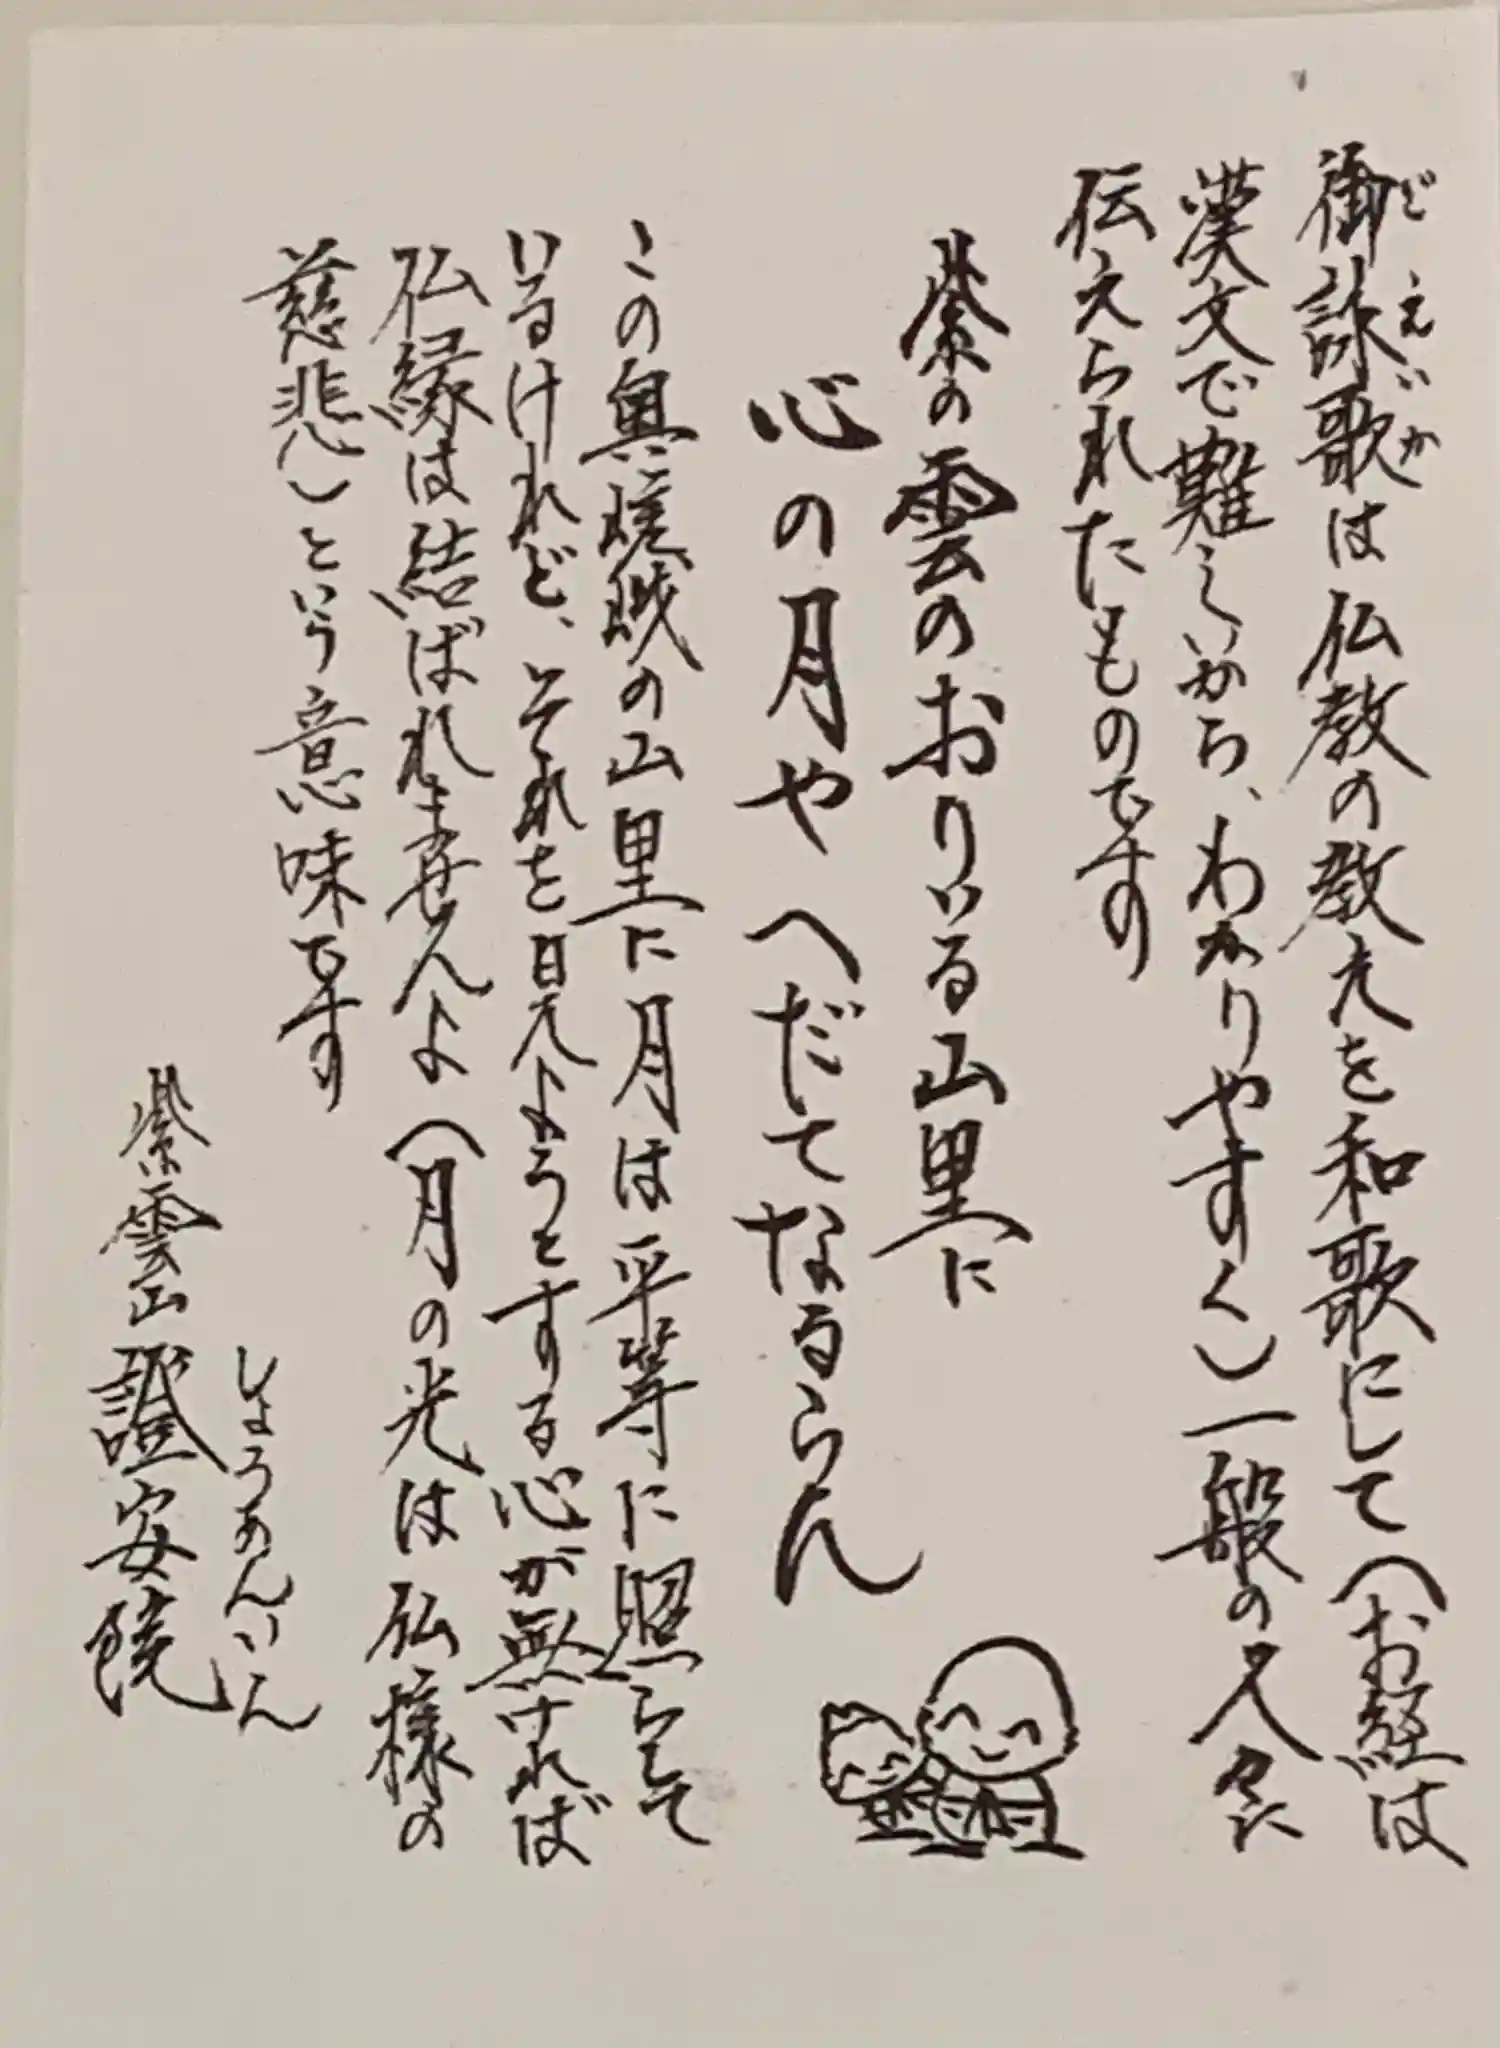 御詠歌は仏教の教えを和歌にして(お経は
ごえいか
漢文で難しいから、わかりやすく)一般の人々に
伝えられたものです
紫の雲のおりいる山里に
心の月やへだてなるらん
この奥嵯峨の山里に月は平等に照らして
いるけれど、それを見ようとする心が無ければ
仏縁は結ばれませんよ(月の光は仏様の
慈悲)という意味です
紫雲山證安院
しょうあんいん